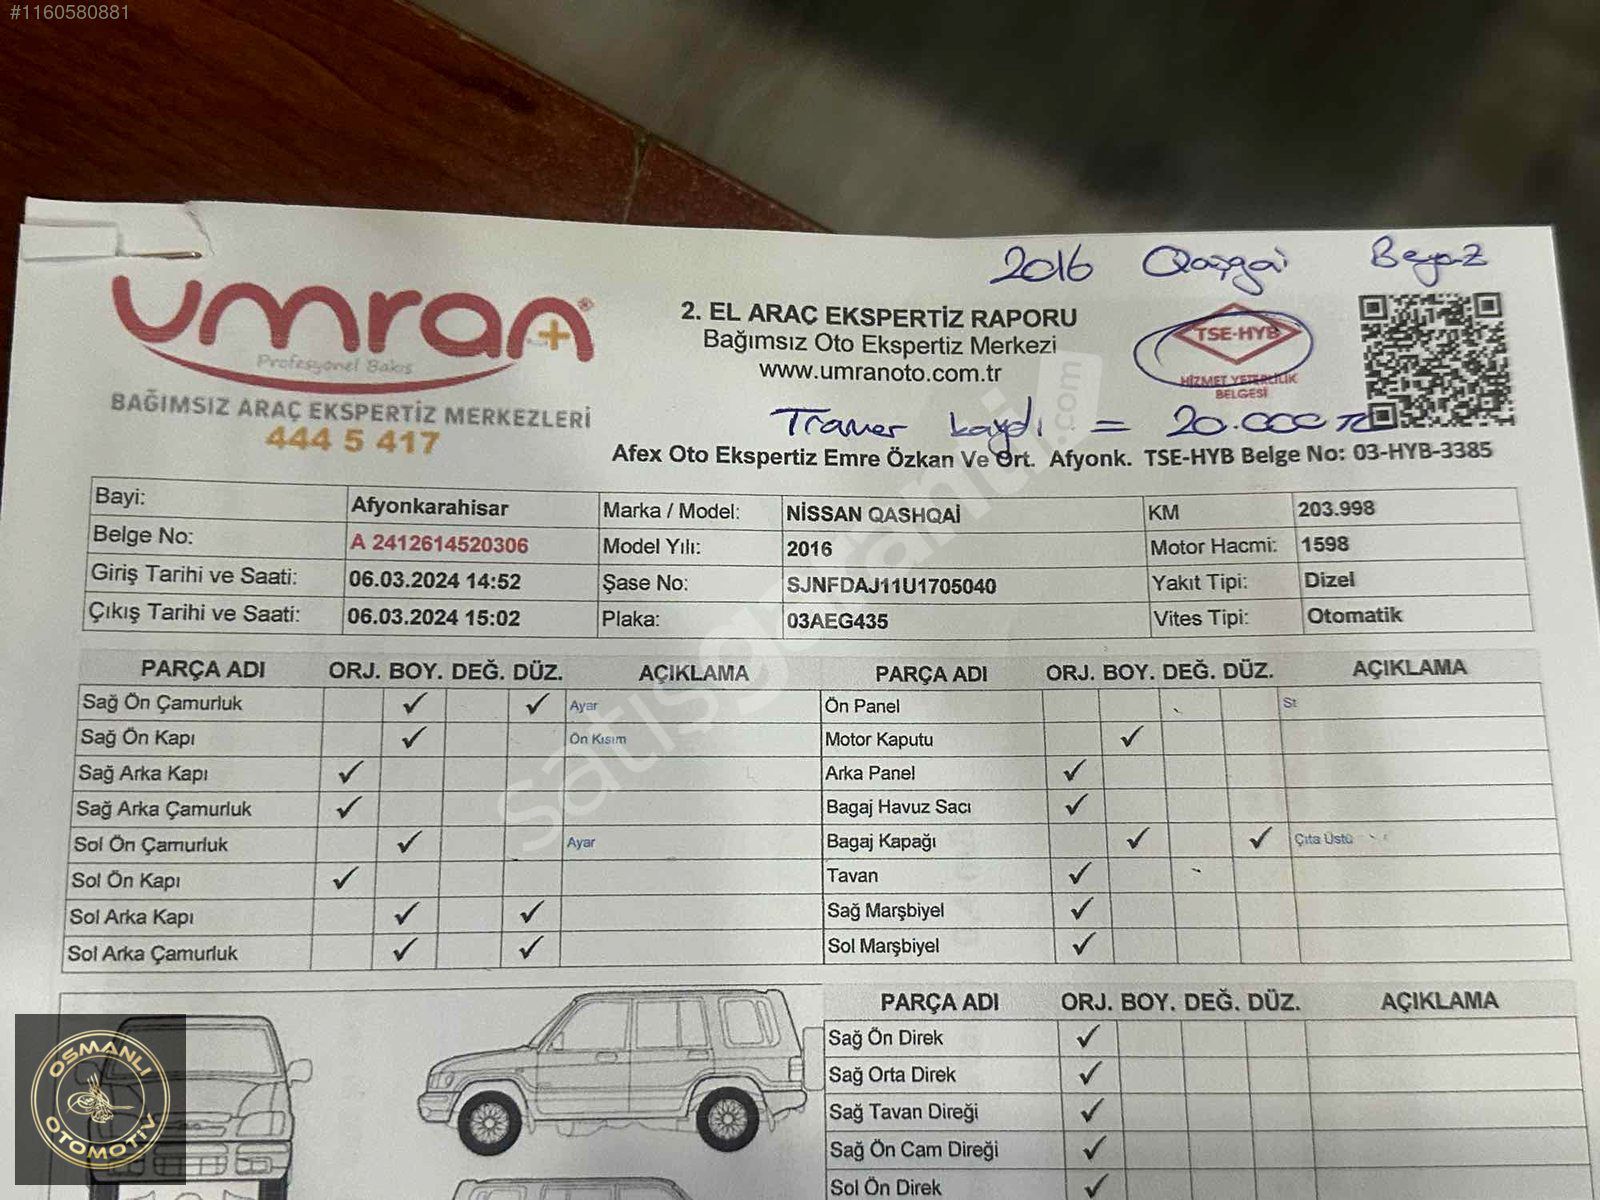 #1160580881
2016 Qaşgai Beyaz
umran+
Profesyonel Bakış
BAĞIMSIZ ARAÇ EKSPERTİZ MERKEZLERİ
444 5 417
2. EL ARAÇ EKSPERTİZ RAPORU
Bağımsız Oto Ekspertiz Merkezi
www.umranoto.com.tr
TSE-HYB
HİZMET YETERLİLİK
BELGESİ
Tramer kaydı = 20.000 TL
Afex Oto Ekspertiz Emre Özkan Ve Ort. Afyonk. TSE-HYB Belge No: 03-HYB-3385
Bayi: Afyonkarahisar Marka / Model: NİSSAN QASHQAİ KM 203.998
Belge No: A 2412614520306 Model Yılı: 2016 Motor Hacmi: 1598
Giriş Tarihi ve Saati: 06.03.2024 14:52 Şase No: SJNFDAJ11U1705040 Yakıt Tipi: Dizel
Çıkış Tarihi ve Saati: 06.03.2024 15:02 Plaka: 03AEG435 Vites Tipi: Otomatik
PARÇA ADI ORJ. BOY. DEĞ. DÜZ. AÇIKLAMA PARÇA ADI ORJ. BOY. DEĞ. DÜZ. AÇIKLAMA
Sağ Ön Çamurluk ✓ ✓ Ayar Ön Panel St
Sağ Ön Kapı ✓ Ön Kısım Motor Kaputu ✓
Sağ Arka Kapı ✓ Arka Panel ✓
Sağ Arka Çamurluk ✓ Bagaj Havuz Sacı ✓
Sol Ön Çamurluk ✓ Ayar Bagaj Kapağı ✓ ✓ Çıta Üstü
Sol Ön Kapı ✓ Tavan ✓
Sol Arka Kapı ✓ ✓ Sağ Marşbiyel ✓
Sol Arka Çamurluk ✓ ✓ Sol Marşbiyel ✓
PARÇA ADI ORJ. BOY. DEĞ. DÜZ. AÇIKLAMA
Sağ Ön Direk ✓
Sağ Orta Direk ✓
Sağ Tavan Direği ✓
Sağ Ön Cam Direği ✓
Sol Ön Direk ✓
satışgaranti.com
OSMANLI
OTOMOTİV